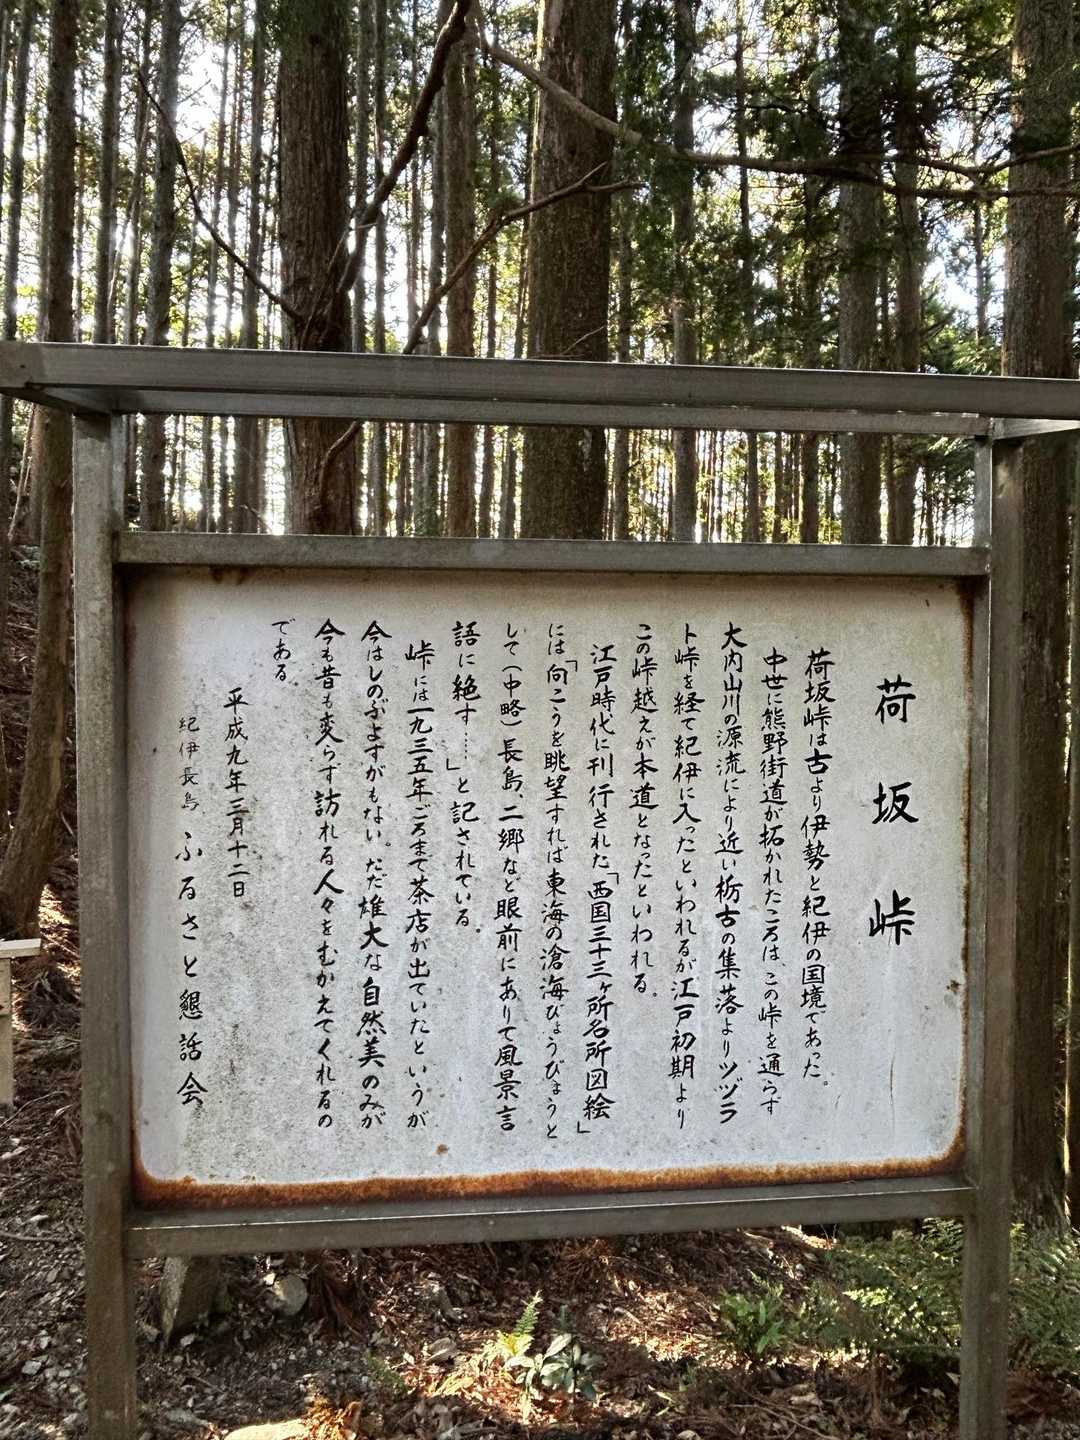 荷坂峠
荷坂峠は古より伊勢と紀伊の国境であった。
中世に熊野街道が拓かれたころは、この峠を通らず
大内山川の源流により近い栃古の集落よりツヅラ
ト峠を経て紀伊に入ったといわれるが江戸初期より
この峠越えが本道となったといわれる。
江戸時代に刊行された「西国三十三ヶ所名所図絵」
には「向こうを眺望すれば東海の滄海びょうびょうと
して(中略)長島、二郷など眼前にありて風景言
語に絶す……」と記されている。
峠には一九三五年ごろまで茶店が出ていたというが
今はしのぶよすがもない。ただ雄大な自然美のみが
今も昔も変らず訪れる人々をむかえてくれるの
である。
平成九年三月十二日
紀伊長島 ふるさと懇話会